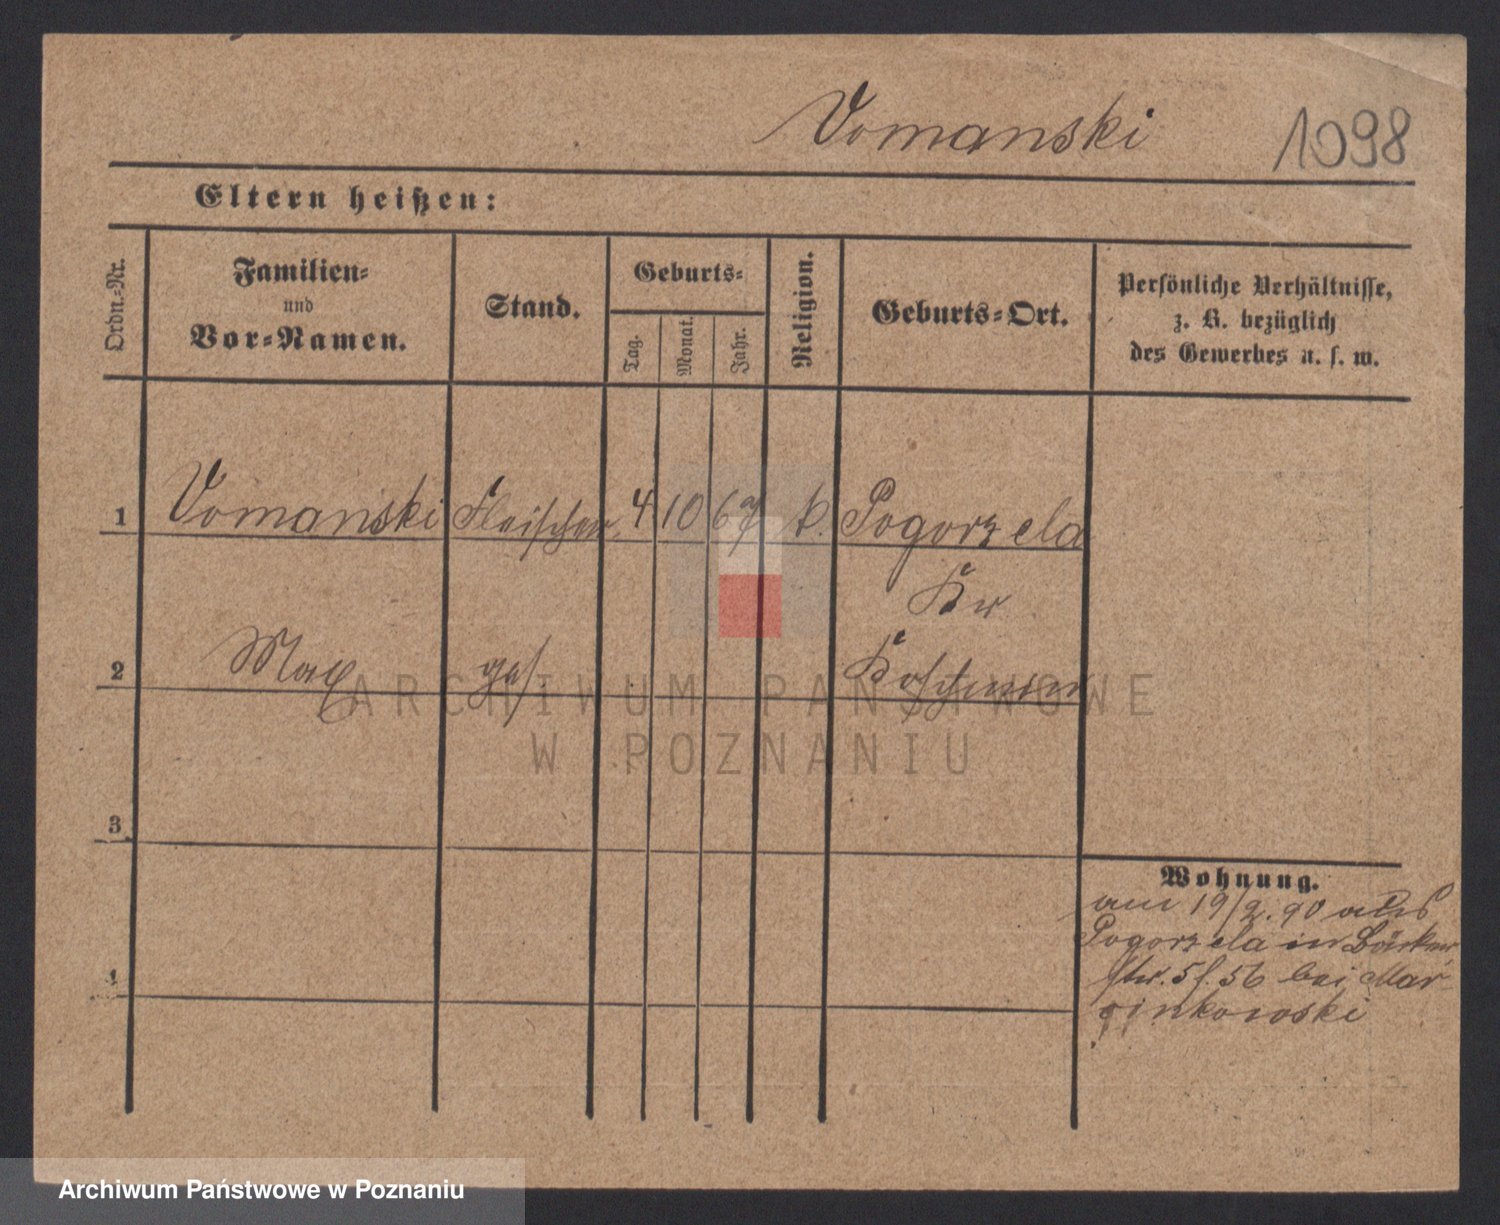 Vomanski 1098
Eltern heißen:
Ordn.-Nr.
Familien-
und
Vor-Namen.
Stand.
Geburts-
Tag.
Monat.
Jahr.
Religion.
Geburts-Ort.
Persönliche Verhältnisse,
z. B. bezüglich
des Gewerbes u. s. w.
1 Vomanski Fleischer 4 10 67 k. Pogorzela
Kr
2 Max ges. Koschmin
3
4
Wohnung.
am 19/2. 90 aus
Pogorzela in Bäcker
str. 5 f. 56 bei Mar
cinkowski
ARCHIWUM PAŃSTWOWE
W POZNANIU
Archiwum Państwowe w Poznaniu